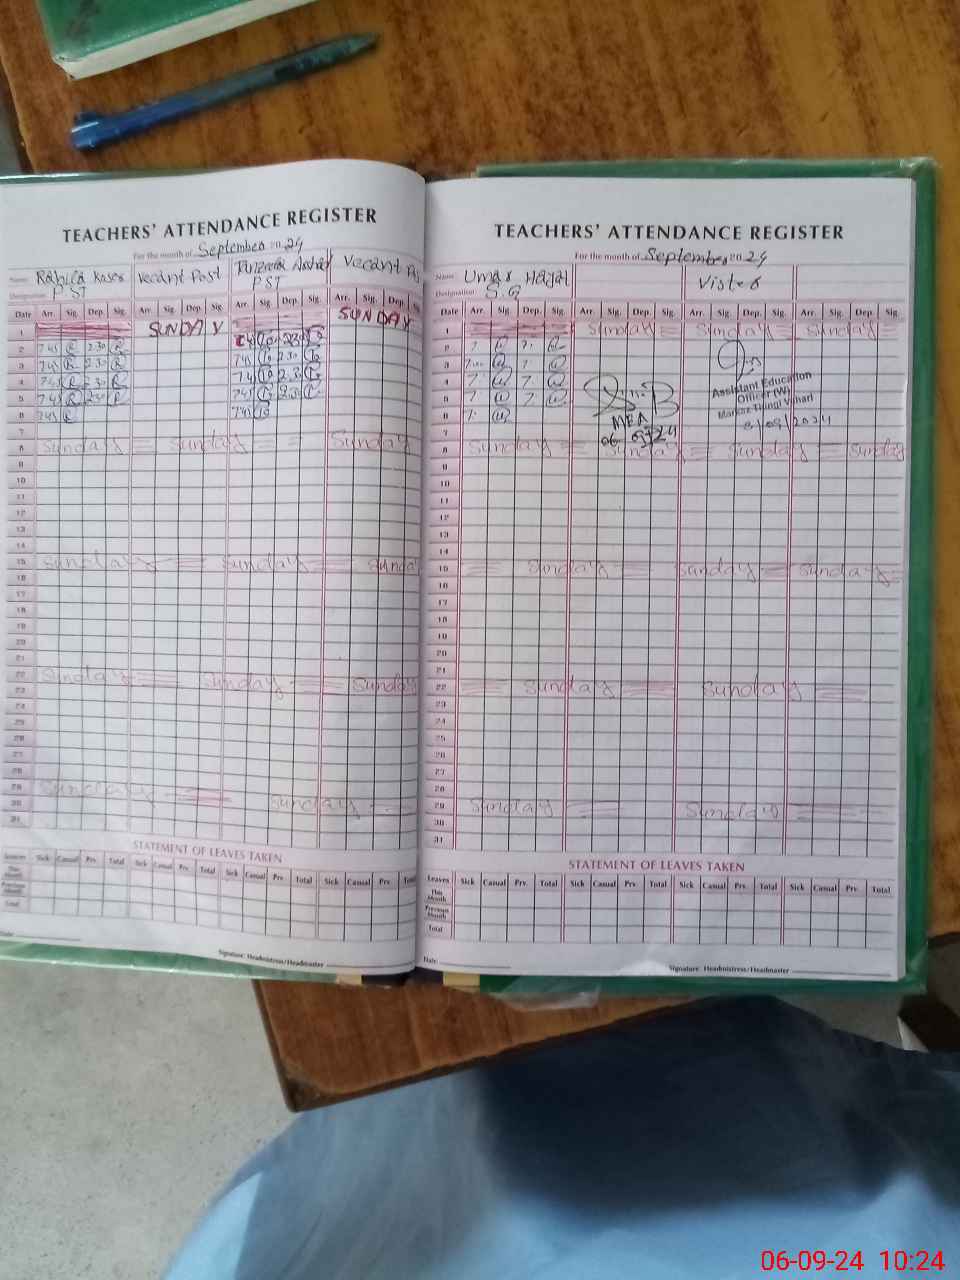 TEACHERS' ATTENDANCE REGISTER
For the month of September 2024
Name Rabica Koser Vecant Post Tanzeela Vecant Pos
Designation PST PST
Date Arr. Sig. Dep. Sig. Arr. Sig. Dep. Sig. Arr. Sig. Dep. Sig. Arr. Sig. Dep. Sig.
1 SUNDAY SUNDAY
2 745 R 2.30 R 745 2.30
3 745 R 2.30 R 745 2.30
4 745 R 2.30 R 745 2.30
5 745 R 2.30 R 745 2.30
6 745 R 745
7
8 Sunday Sunday Sunday
9
10
11
12
13
14
15 Sunday Sunday Sunda
16
17
18
19
20
21
22 Sunday Sunday Sunday
23
24
25
26
27
28
29 Sunday Sunday
30
31
STATEMENT OF LEAVES TAKEN
Leaves Sick Casual Prv. Total Sick Casual Prv. Total Sick Casual Prv. Total Sick Casual Prv. Total
This Month
Previous Month
Total
Date
Signature: Headmistress/Headmaster
TEACHERS' ATTENDANCE REGISTER
For the month of September 2024
Name Umar Hayat Vister
Designation S.G
Date Arr. Sig. Dep. Sig. Arr. Sig. Dep. Sig. Arr. Sig. Dep. Sig. Arr. Sig. Dep. Sig.
1 Sunday Sunday Sunday
2 7. 7.
3 7. 7.
4 7. 7.
5 7. 7.
6 7.
7
Assistant Education
Officer (W)
Markaz Thingi Vehari
MEA
06 09/24
/09/2024
8 Sunday Sunday Sunday Sunday
9
10
11
12
13
14
15 Sunday Sunday Sunday
16
17
18
19
20
21
22 Sunday Sunday
23
24
25
26
27
28
29 Sunday Sunday
30
31
STATEMENT OF LEAVES TAKEN
Leaves Sick Casual Prv. Total Sick Casual Prv. Total Sick Casual Prv. Total Sick Casual Prv. Total
This Month
Previous Month
Total
Date:
Signature: Headmistress/Headmaster
06-09-24 10:24